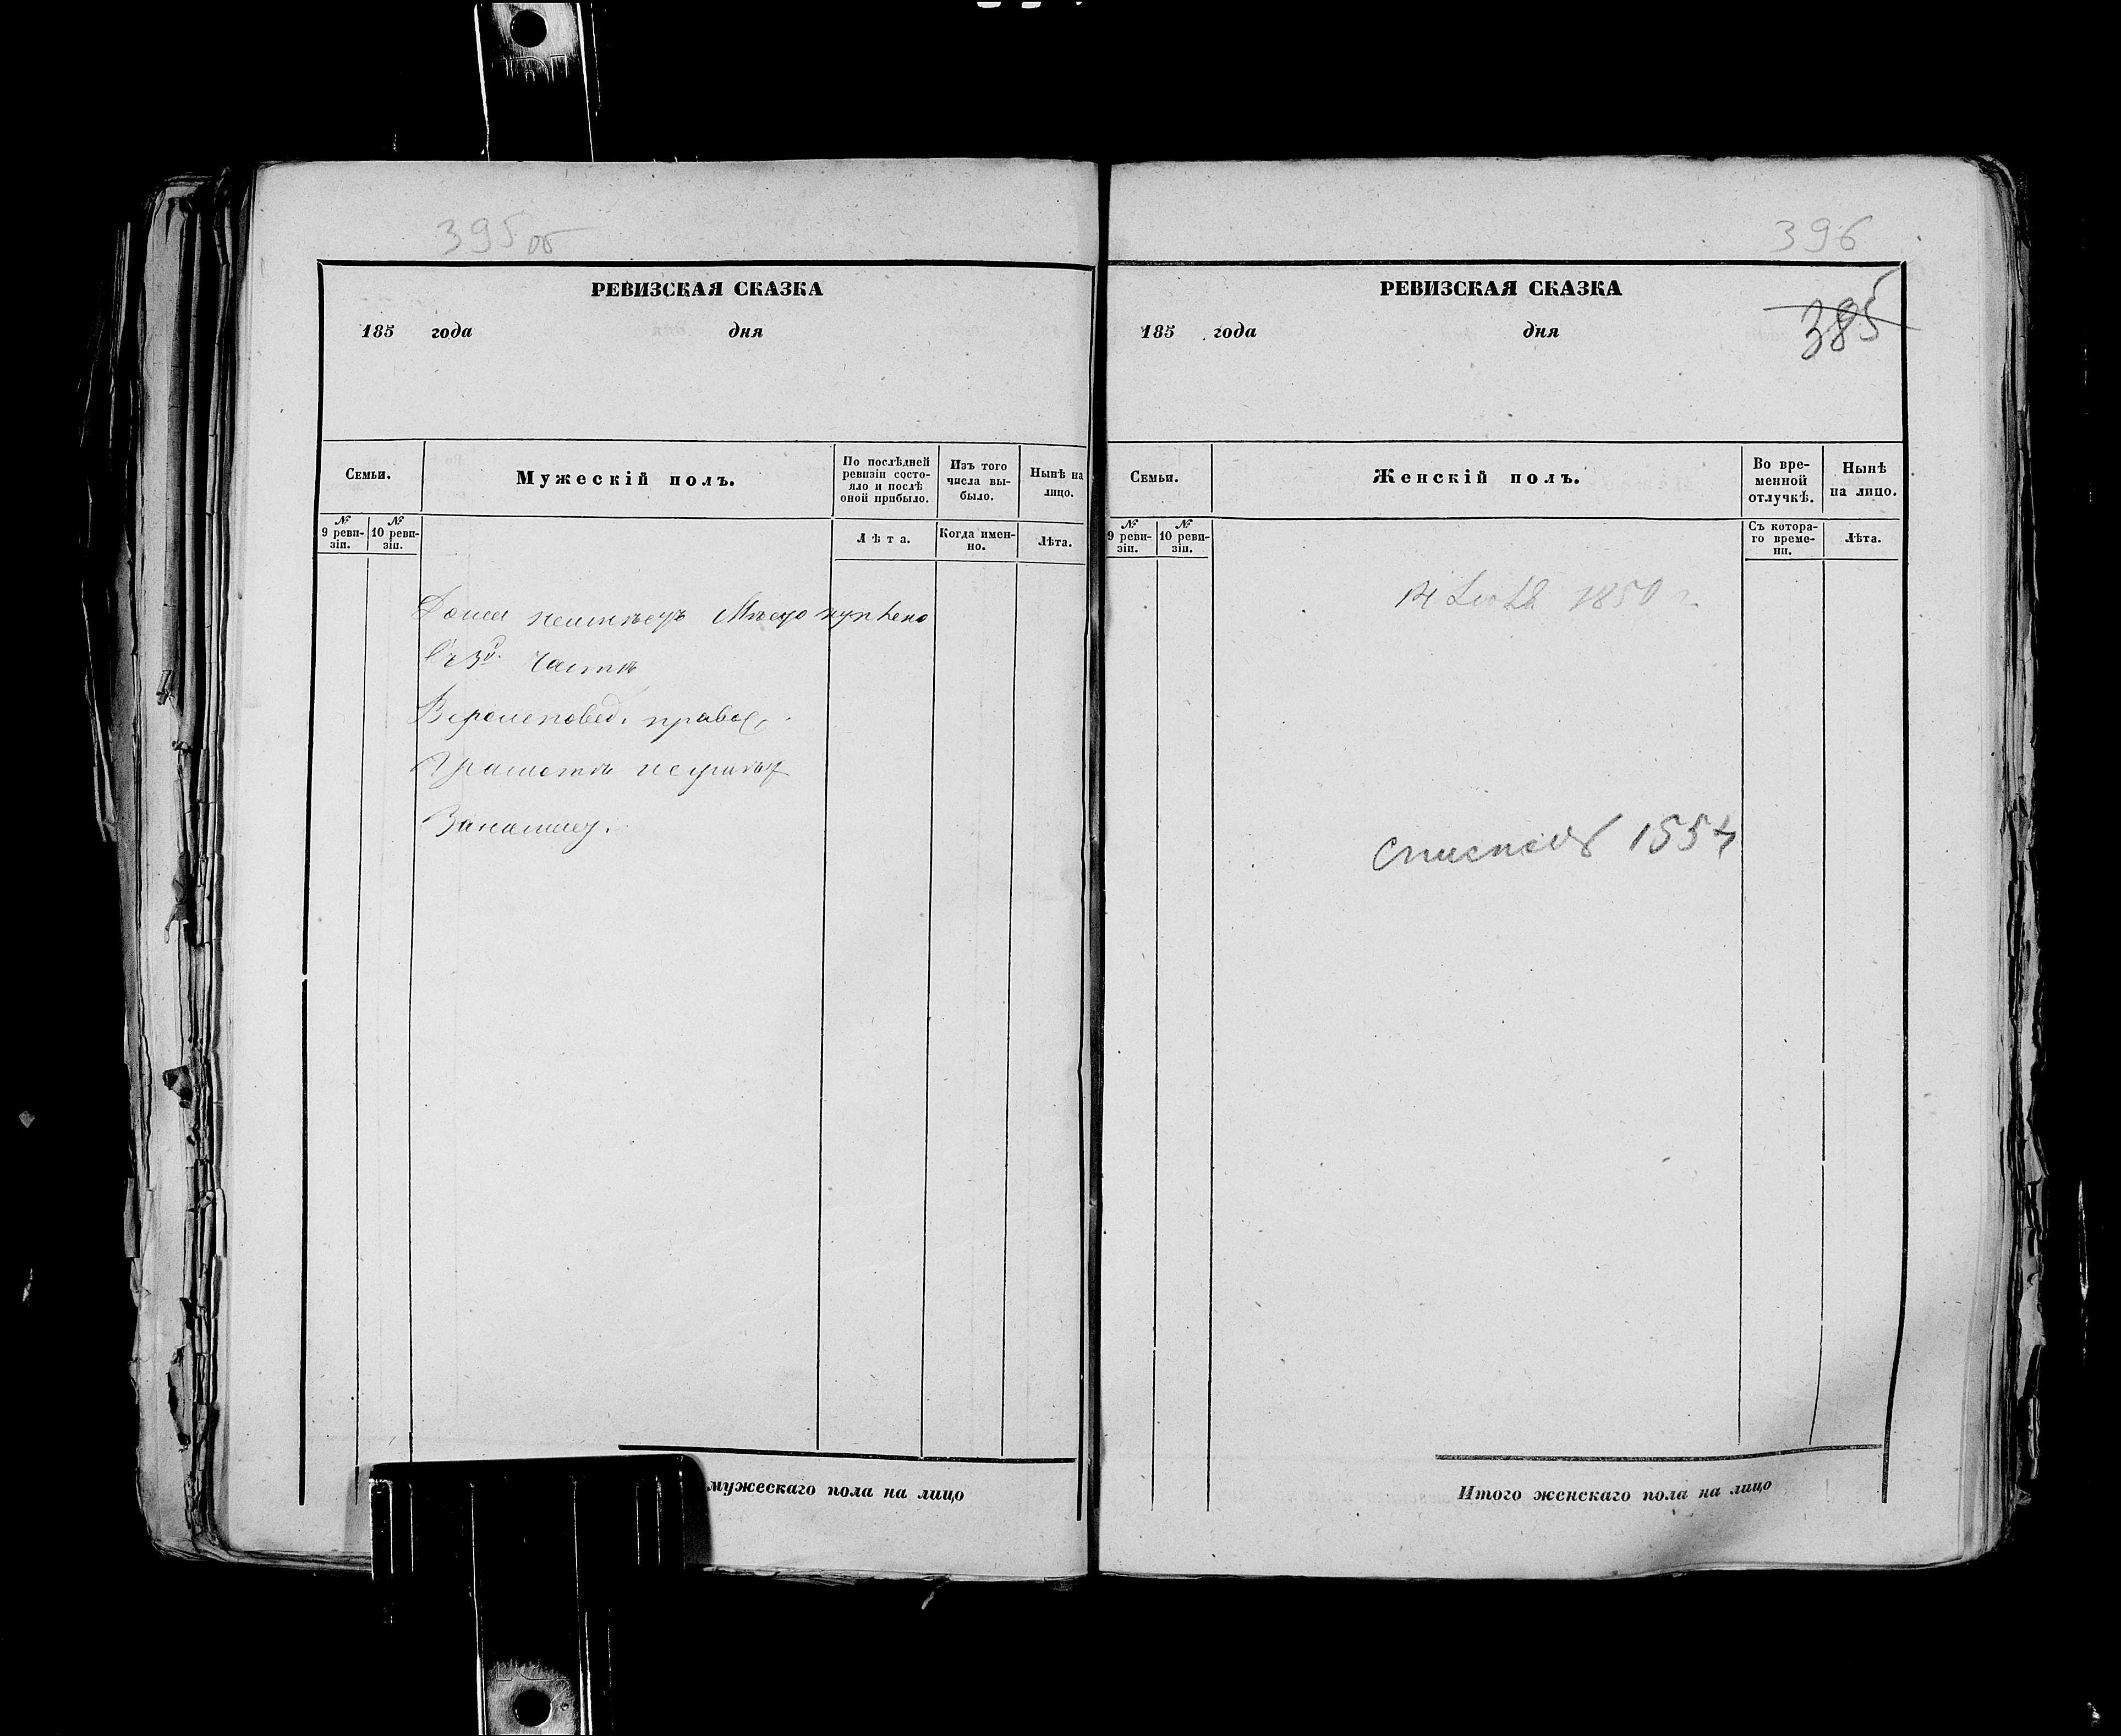 395 об
РЕВИЗСКАЯ СКАЗКА
185 года дня
Семьи.
Мужескій полъ.
По послѣдней ревизіи состо-
яло и послѣ
оной прибыло.
Изъ того
числа вы-
было.
Нынѣ на
лицо.
№
9 реви-
зіи.
№
10 реви-
зіи.
Лѣта.
Когда имен-
но.
Лѣта.
Дома неимѣетъ Мѣсто куплено
въ 3й части
Вероисповед. правос.
Грамотѣ неумѣет
мужескаго пола на лицо
396
385
РЕВИЗСКАЯ СКАЗКА
185 года дня
Семьи.
Женскій полъ.
Во вре-
менной
отлучкѣ.
Нынѣ
на лицо.
№
9 реви-
зіи.
№
10 реви-
зіи.
Съ котора-
го време-
ни.
Лѣта.
1850 г.
Итого женскаго пола на лицо